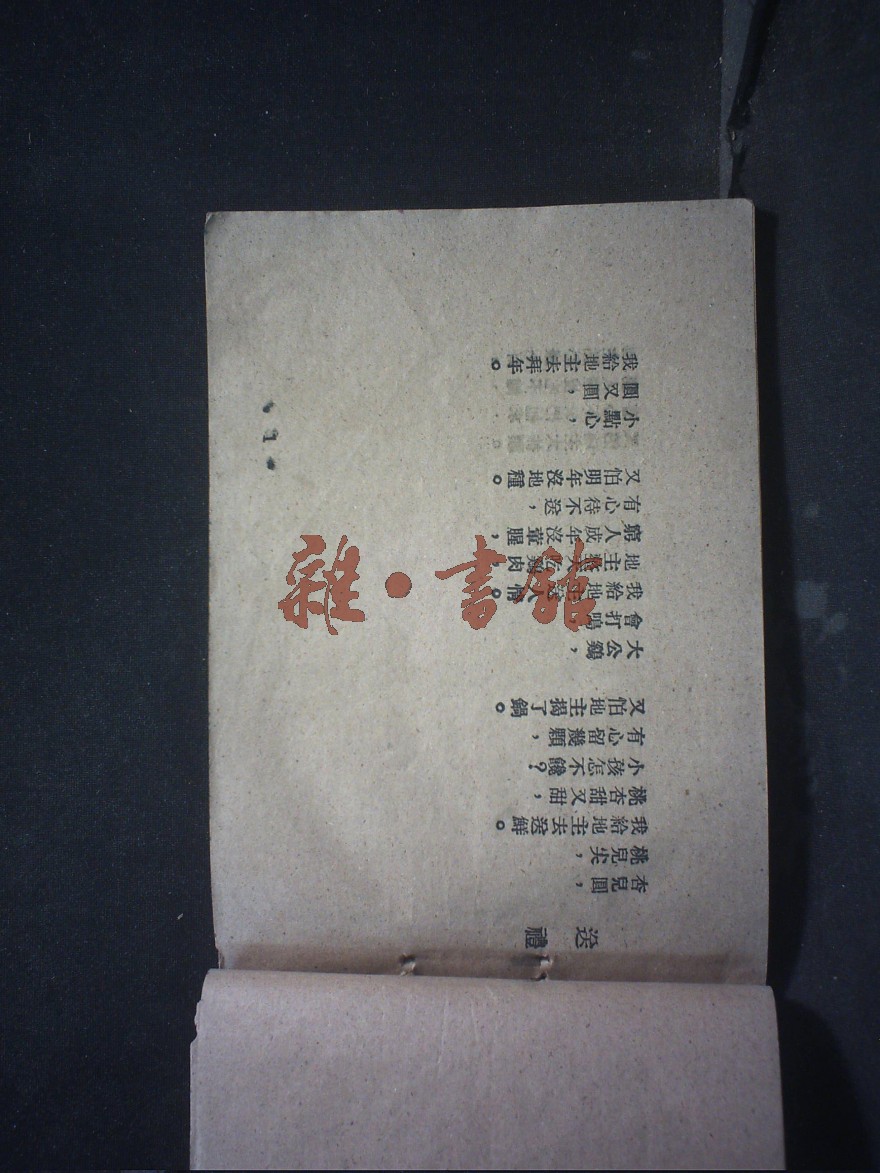 送禮
杏兒圓，
桃兒尖，
我給地主去送鮮。
桃杏甜又甜，
小孩怎不饞？
有心留幾顆，
又怕地主揭了鍋。
大公鷄，
會打鳴，
我給地主送人情。
地主天天吃鷄肉，
窮人成年沒葷腥，
有心待不送，
又怕明年沒地種。
小點心，
圓又圓，
我給地主去拜年。
• 1 •
雜·書館